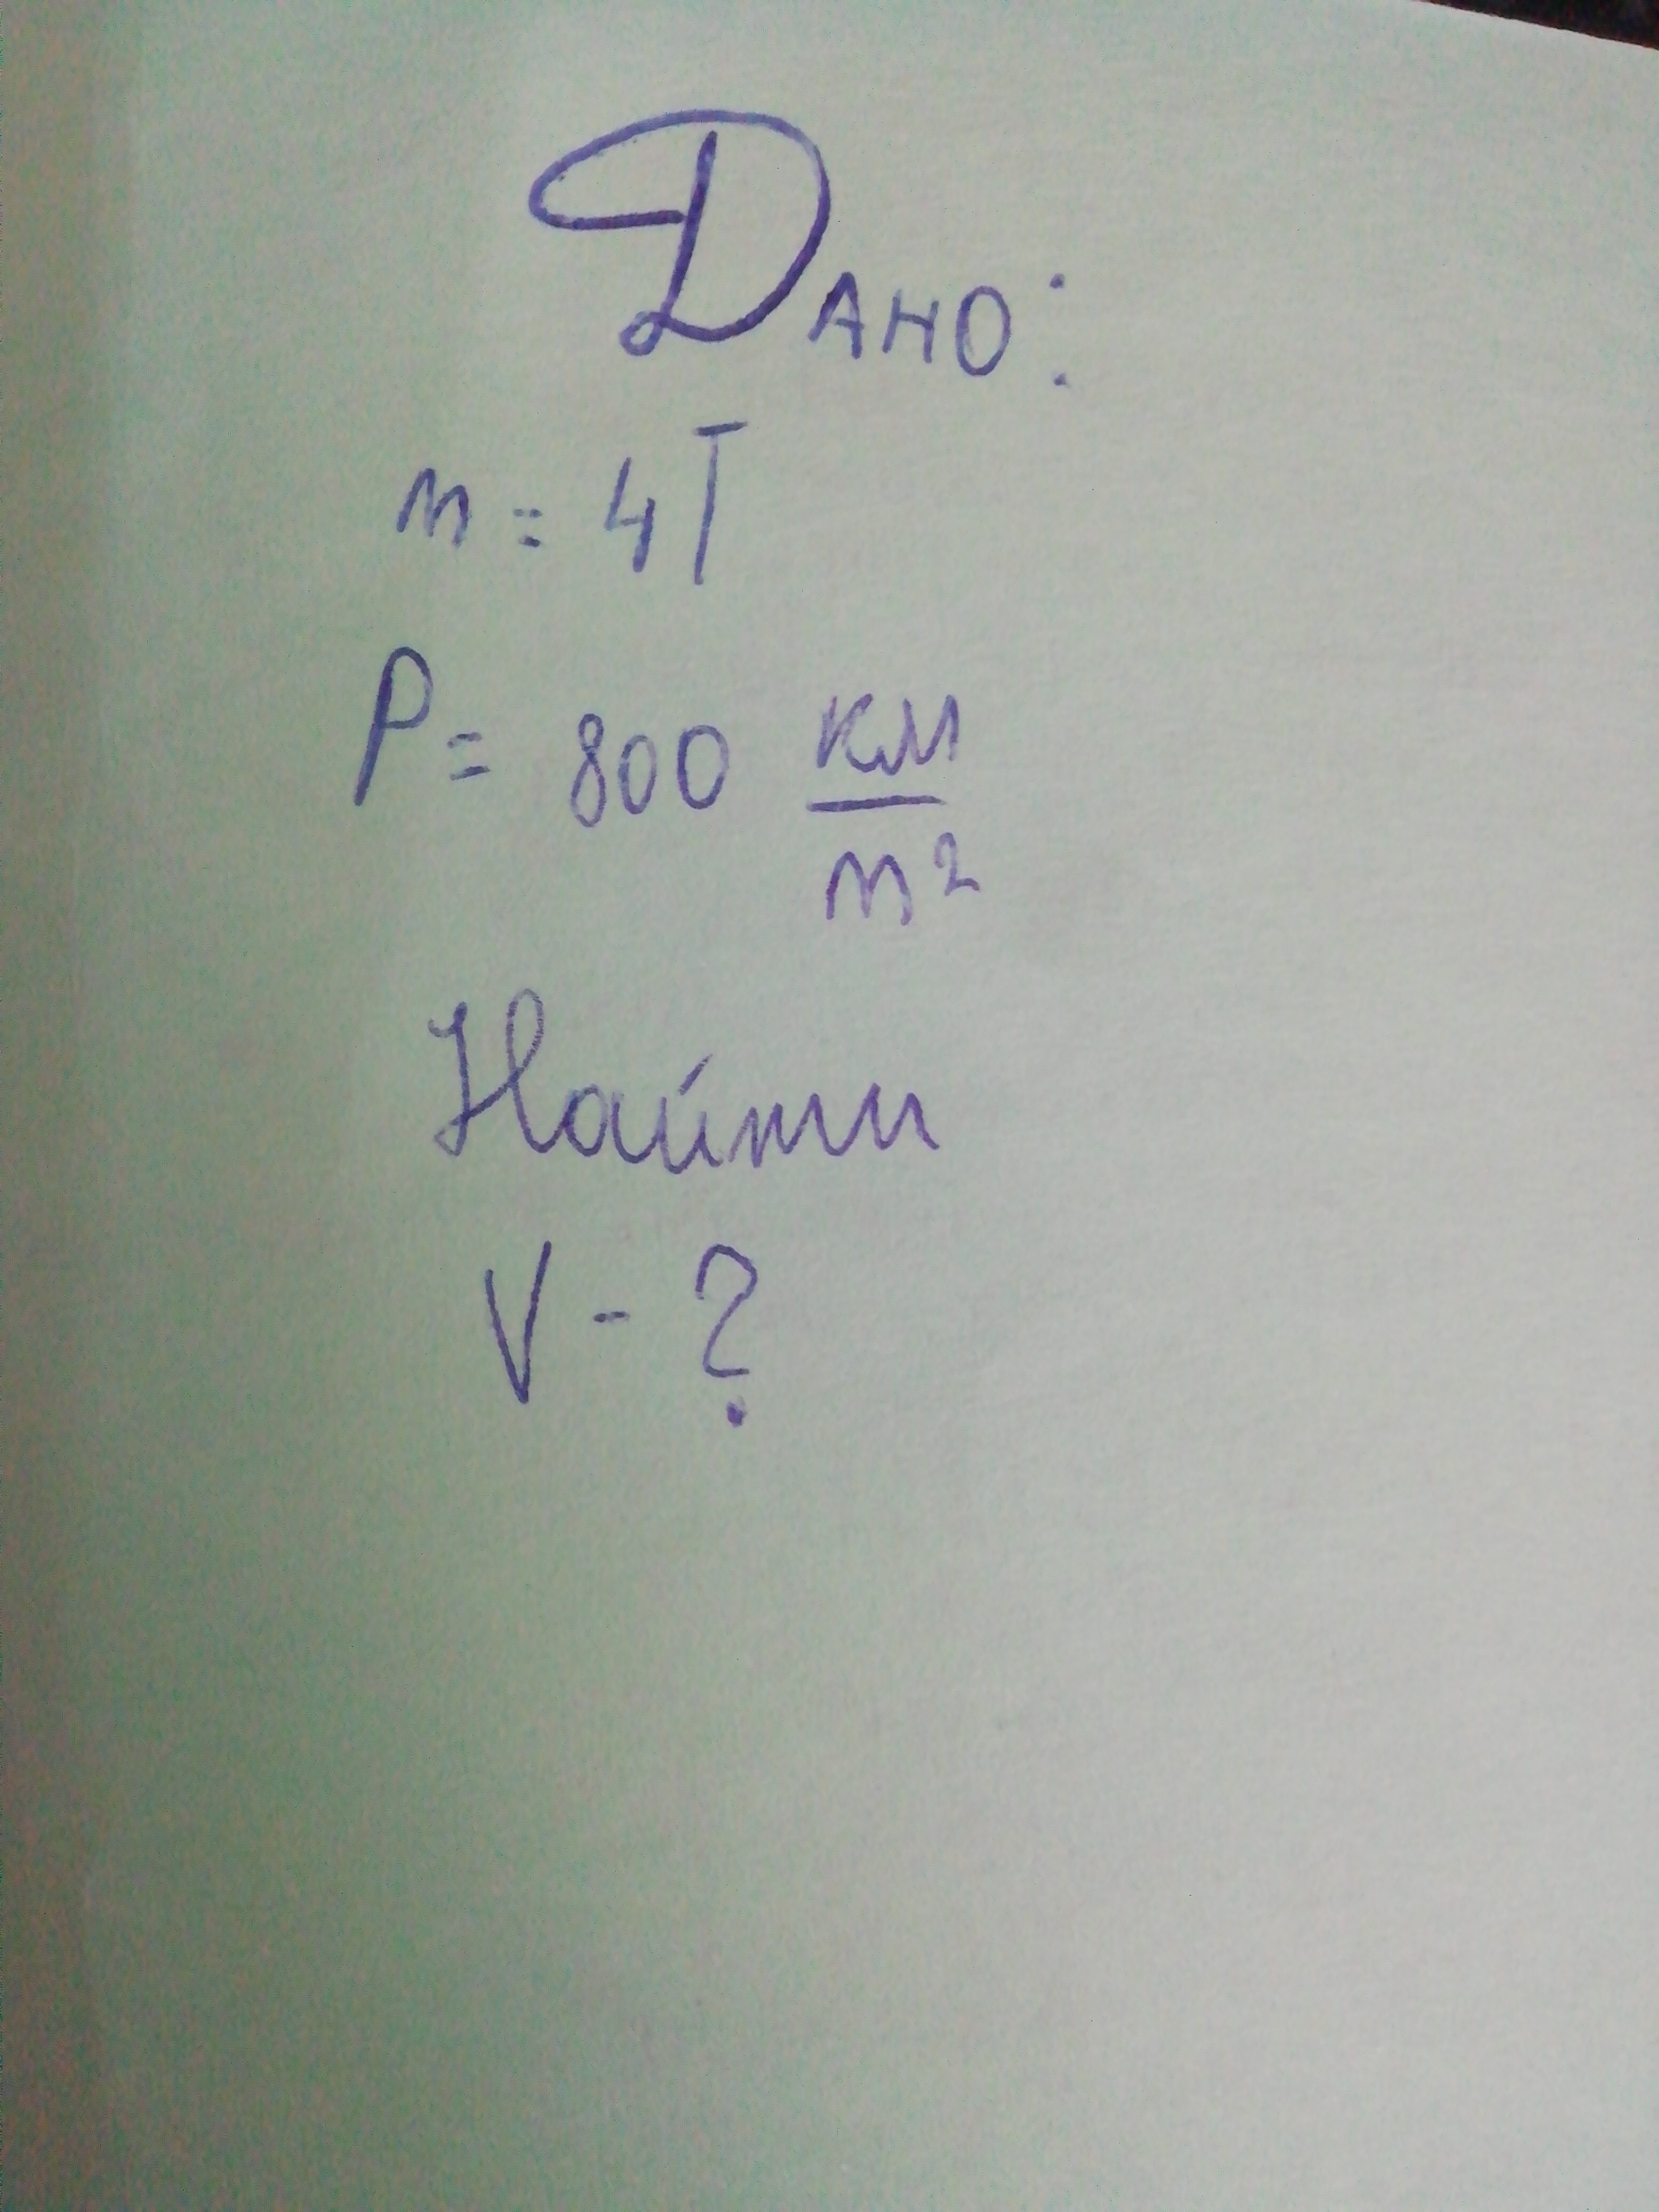 Дано:
m = 4Т
P = 800 км/м²
Найти
V - ?